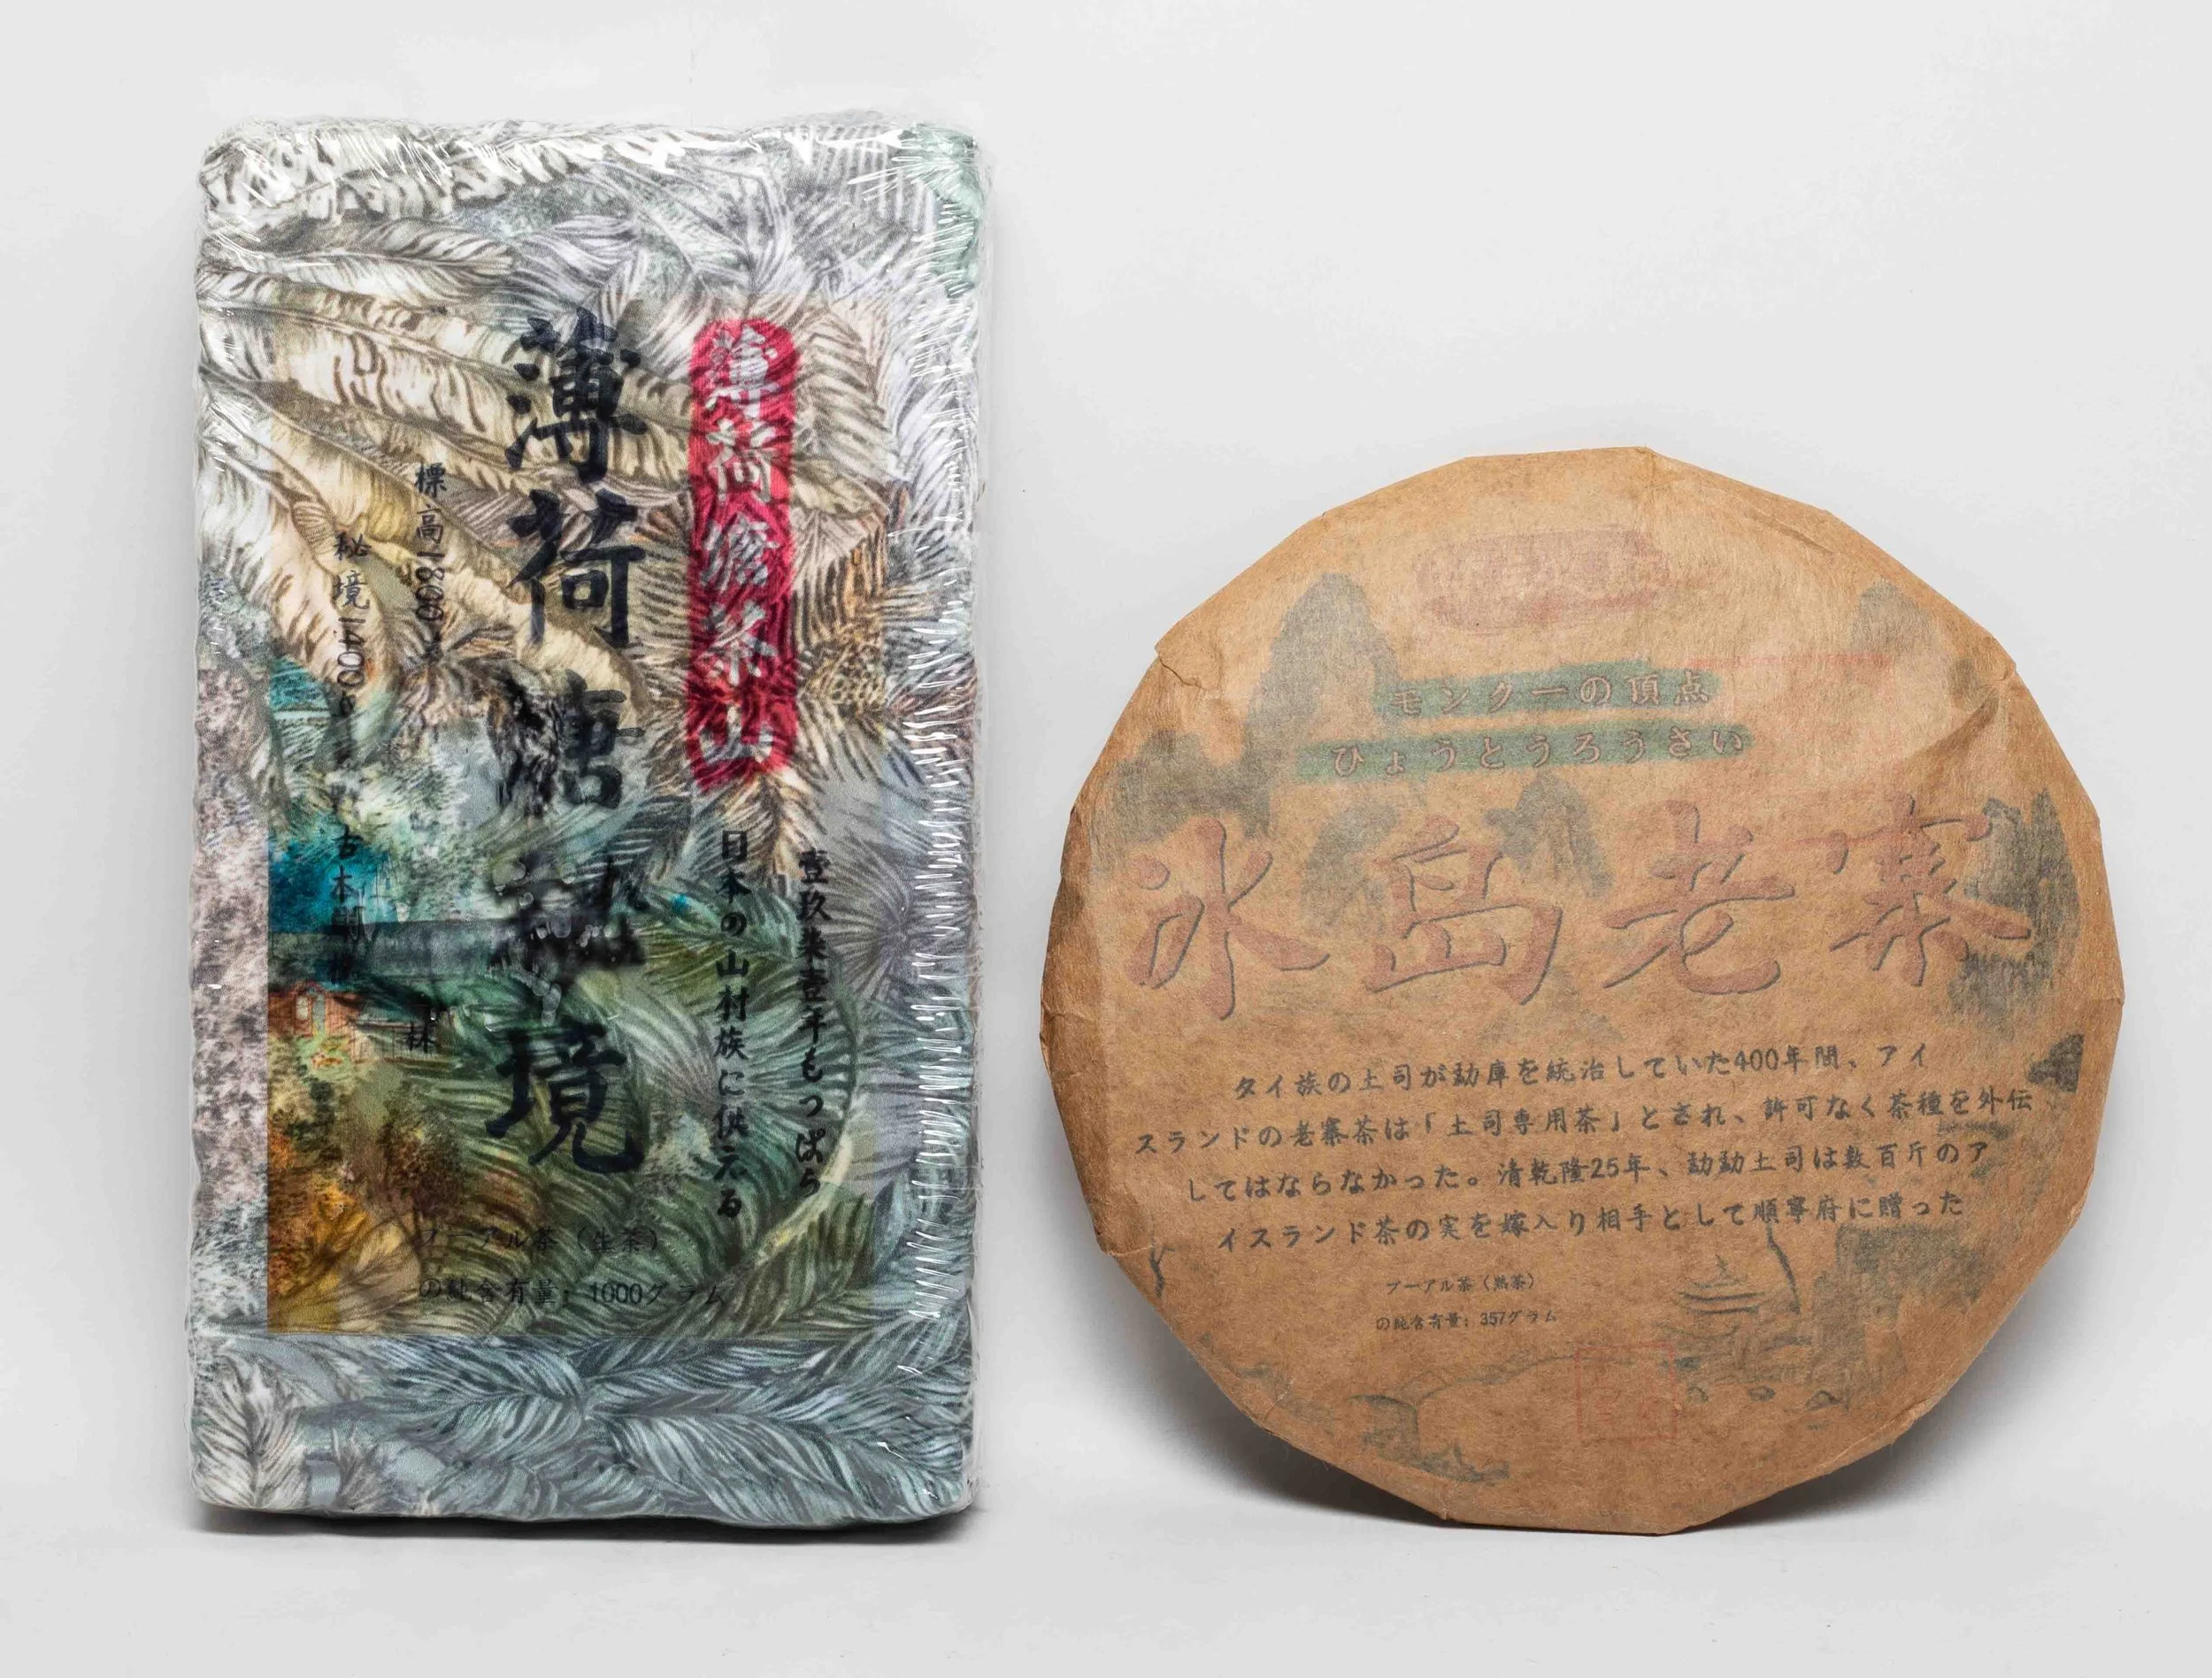 薄荷塘茶山
薄荷塘秘境
壹玖柒壹年もっぱら
日本の山村族に供える
標高1800
秘境1400
古木
林
プーアル茶（生茶）
の純含有量：1000グラム
モンクーの頂点
ひょうとうろうさい
冰島老寨
タイ族の土司が勐庫を統治していた400年間、アイ
スランドの老寨茶は「土司専用茶」とされ、許可なく茶種を外伝
してはならなかった。清乾隆25年、勐勐土司は数百斤のア
イスランド茶の実を嫁入り相手として順寧府に贈った
プーアル茶（熟茶）
の純含有量：357グラム